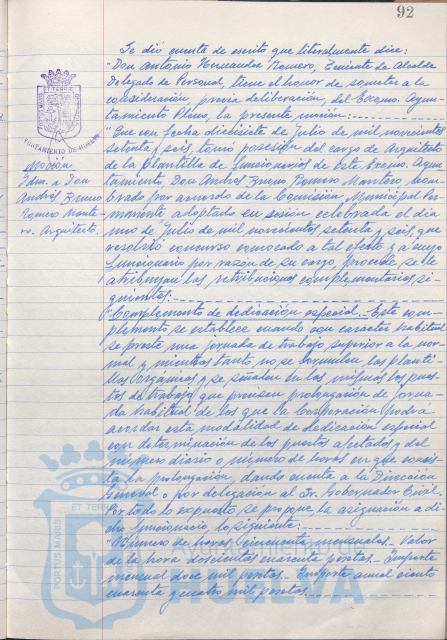 92
Se dió cuenta de escrito que literalmente dice:
"Don Antonio Hernandez Romero, Teniente de Alcalde
Delegado de Personal, tiene el honor de someter a la
consideración, previa deliberación, del Excmo. Ayun-
tamiento Pleno, la presente moción:
"Que con fecha diecisiete de julio de mil novecientos
setenta y seis, tomó posesión del cargo de Arquitecto
de la plantilla de funcionarios de este Excmo. Ayun-
tamiento, Don Andres Bruno Romero Mantero, nom-
brado por acuerdo de la Comisión Municipal Per-
manente adoptado en sesión celebrada el día
uno de julio de mil novecientos setenta y seis, que
resolvió concurso convocado a tal efecto y a cuyo
funcionario por razón de su cargo, procede se le
atribuyan las retribuciones complementarias si-
guientes:
"Complemento de dedicación especial.- Este com-
plemento se establece cuando con caracter habitual
se preste una jornada de trabajo superior a la nor-
mal y mientras tanto no se formulen las planti-
llas orgánicas y se señalen en las mismas los pues-
tos de trabajo que precisen prolongación de jorna-
da habitual de los que la Corporación podrá
acordar esta modalidad de dedicación especial
con determinación de los puestos afectados y del
número diario o número de horas en que consis-
ta la prolongación, dando cuenta a la Dirección
General o por delegación al Sr. Gobernador Civil.
Por todo lo expuesto se propone la asignación a di-
cho funcionario, lo siguiente:
"Número de horas cincuenta mensuales.- Valor
de la hora doscientas cuarenta pesetas.- Importe
mensual doce mil pesetas.- Importe anual ciento
cuarenta y cuatro mil pesetas.
AYUNTAMIENTO DE HUELVA
Moción
Idm. a Don
Andrés Bruno
Romero Mante-
ro. Arquitecto.
PORTUS MARIS
ET TERRÆ
Ayuntamiento
HUELVA